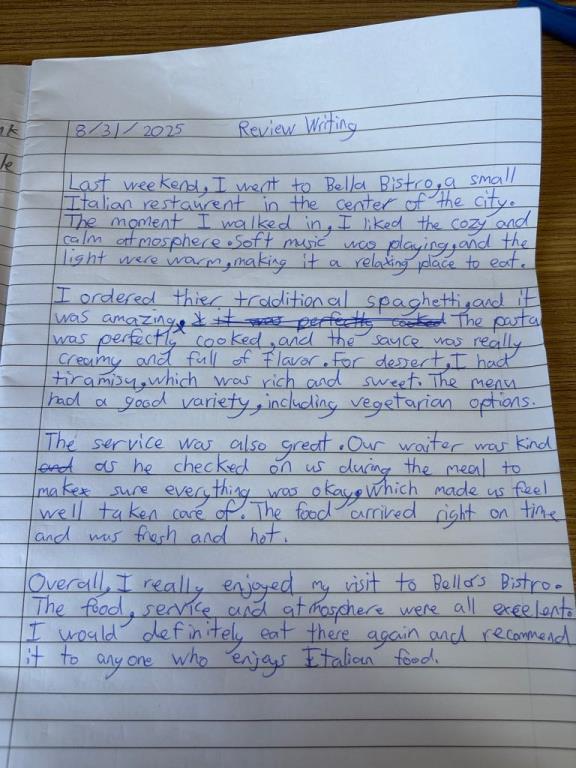 8/31/2025 Review Writing
Last weekend, I went to Bella Bistro, a small
Italian restaurent in the center of the city.
The moment I walked in, I liked the cozy and
calm atmosphere. Soft music was playing, and the
light were warm, making it a relaxing place to eat.
I ordered thier traditional spaghetti, and it
was amazing. it was perfectly cooked The pasta
was perfectly cooked, and the sauce was really
creamy and full of flavor. For dessert, I had
tiramisu, which was rich and sweet. The menu
had a good variety, including vegetarian options.
The service was also great. Our waiter was kind
and as he checked on us during the meal to
make sure everything was okay, which made us feel
well taken care of. The food arrived right on time
and was fresh and hot.
Overall, I really enjoyed my visit to Bella's Bistro.
The food, service and atmosphere were all excelent.
I would definitely eat there again and recommend
it to anyone who enjoys Italian food.